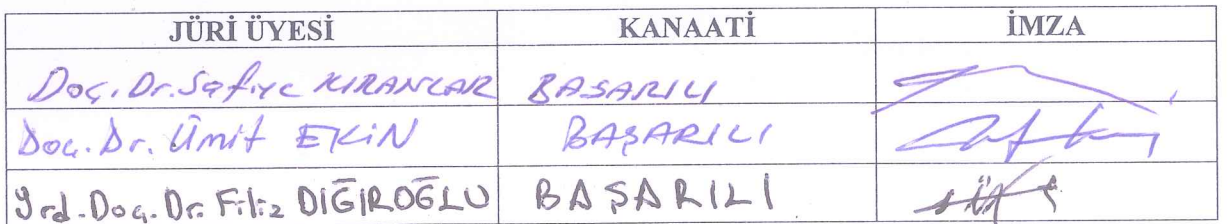 JÜRİ ÜYESİ KANAATİ İMZA
Doç. Dr. Safiye KIRANLAR BAŞARILI
Doç. Dr. Ümit EKİN BAŞARILI
Yrd. Doç. Dr. Filiz DIĞIROĞLU BAŞARILI